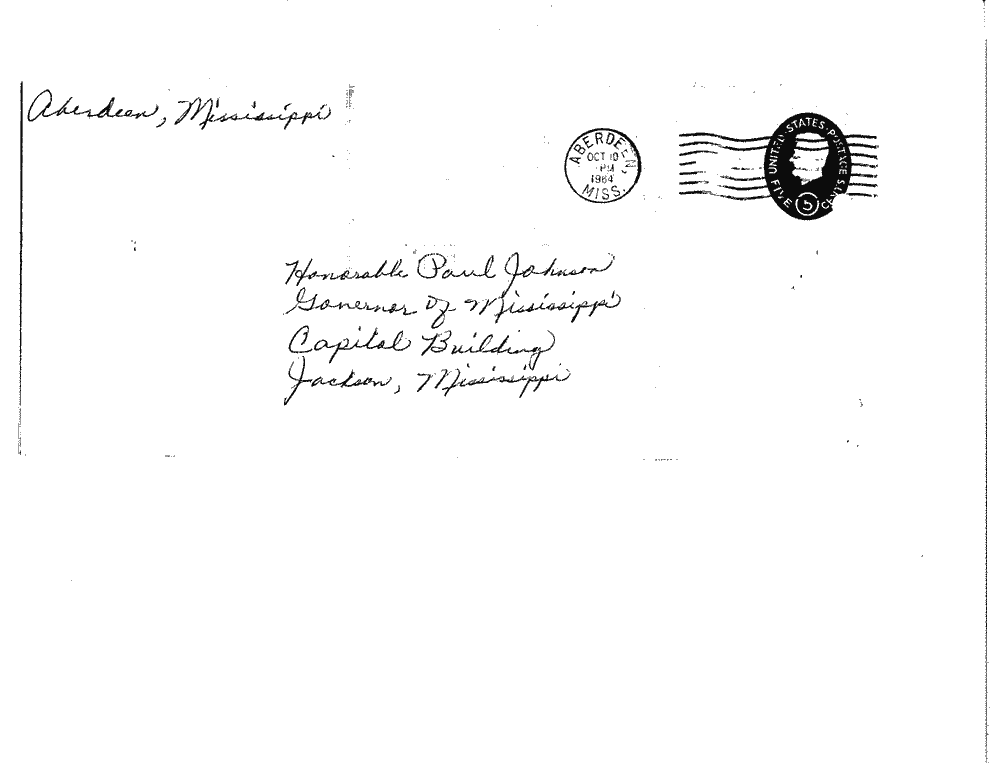 Aberdeen, Mississippi
ABERDEEN,
OCT 10
PM
1964
MISS.
UNITED STATES POSTAGE
FIVE 5 CENTS
Honorable Paul Johnson
Governor Of Mississippi
Capitol Building
Jackson, Mississippi